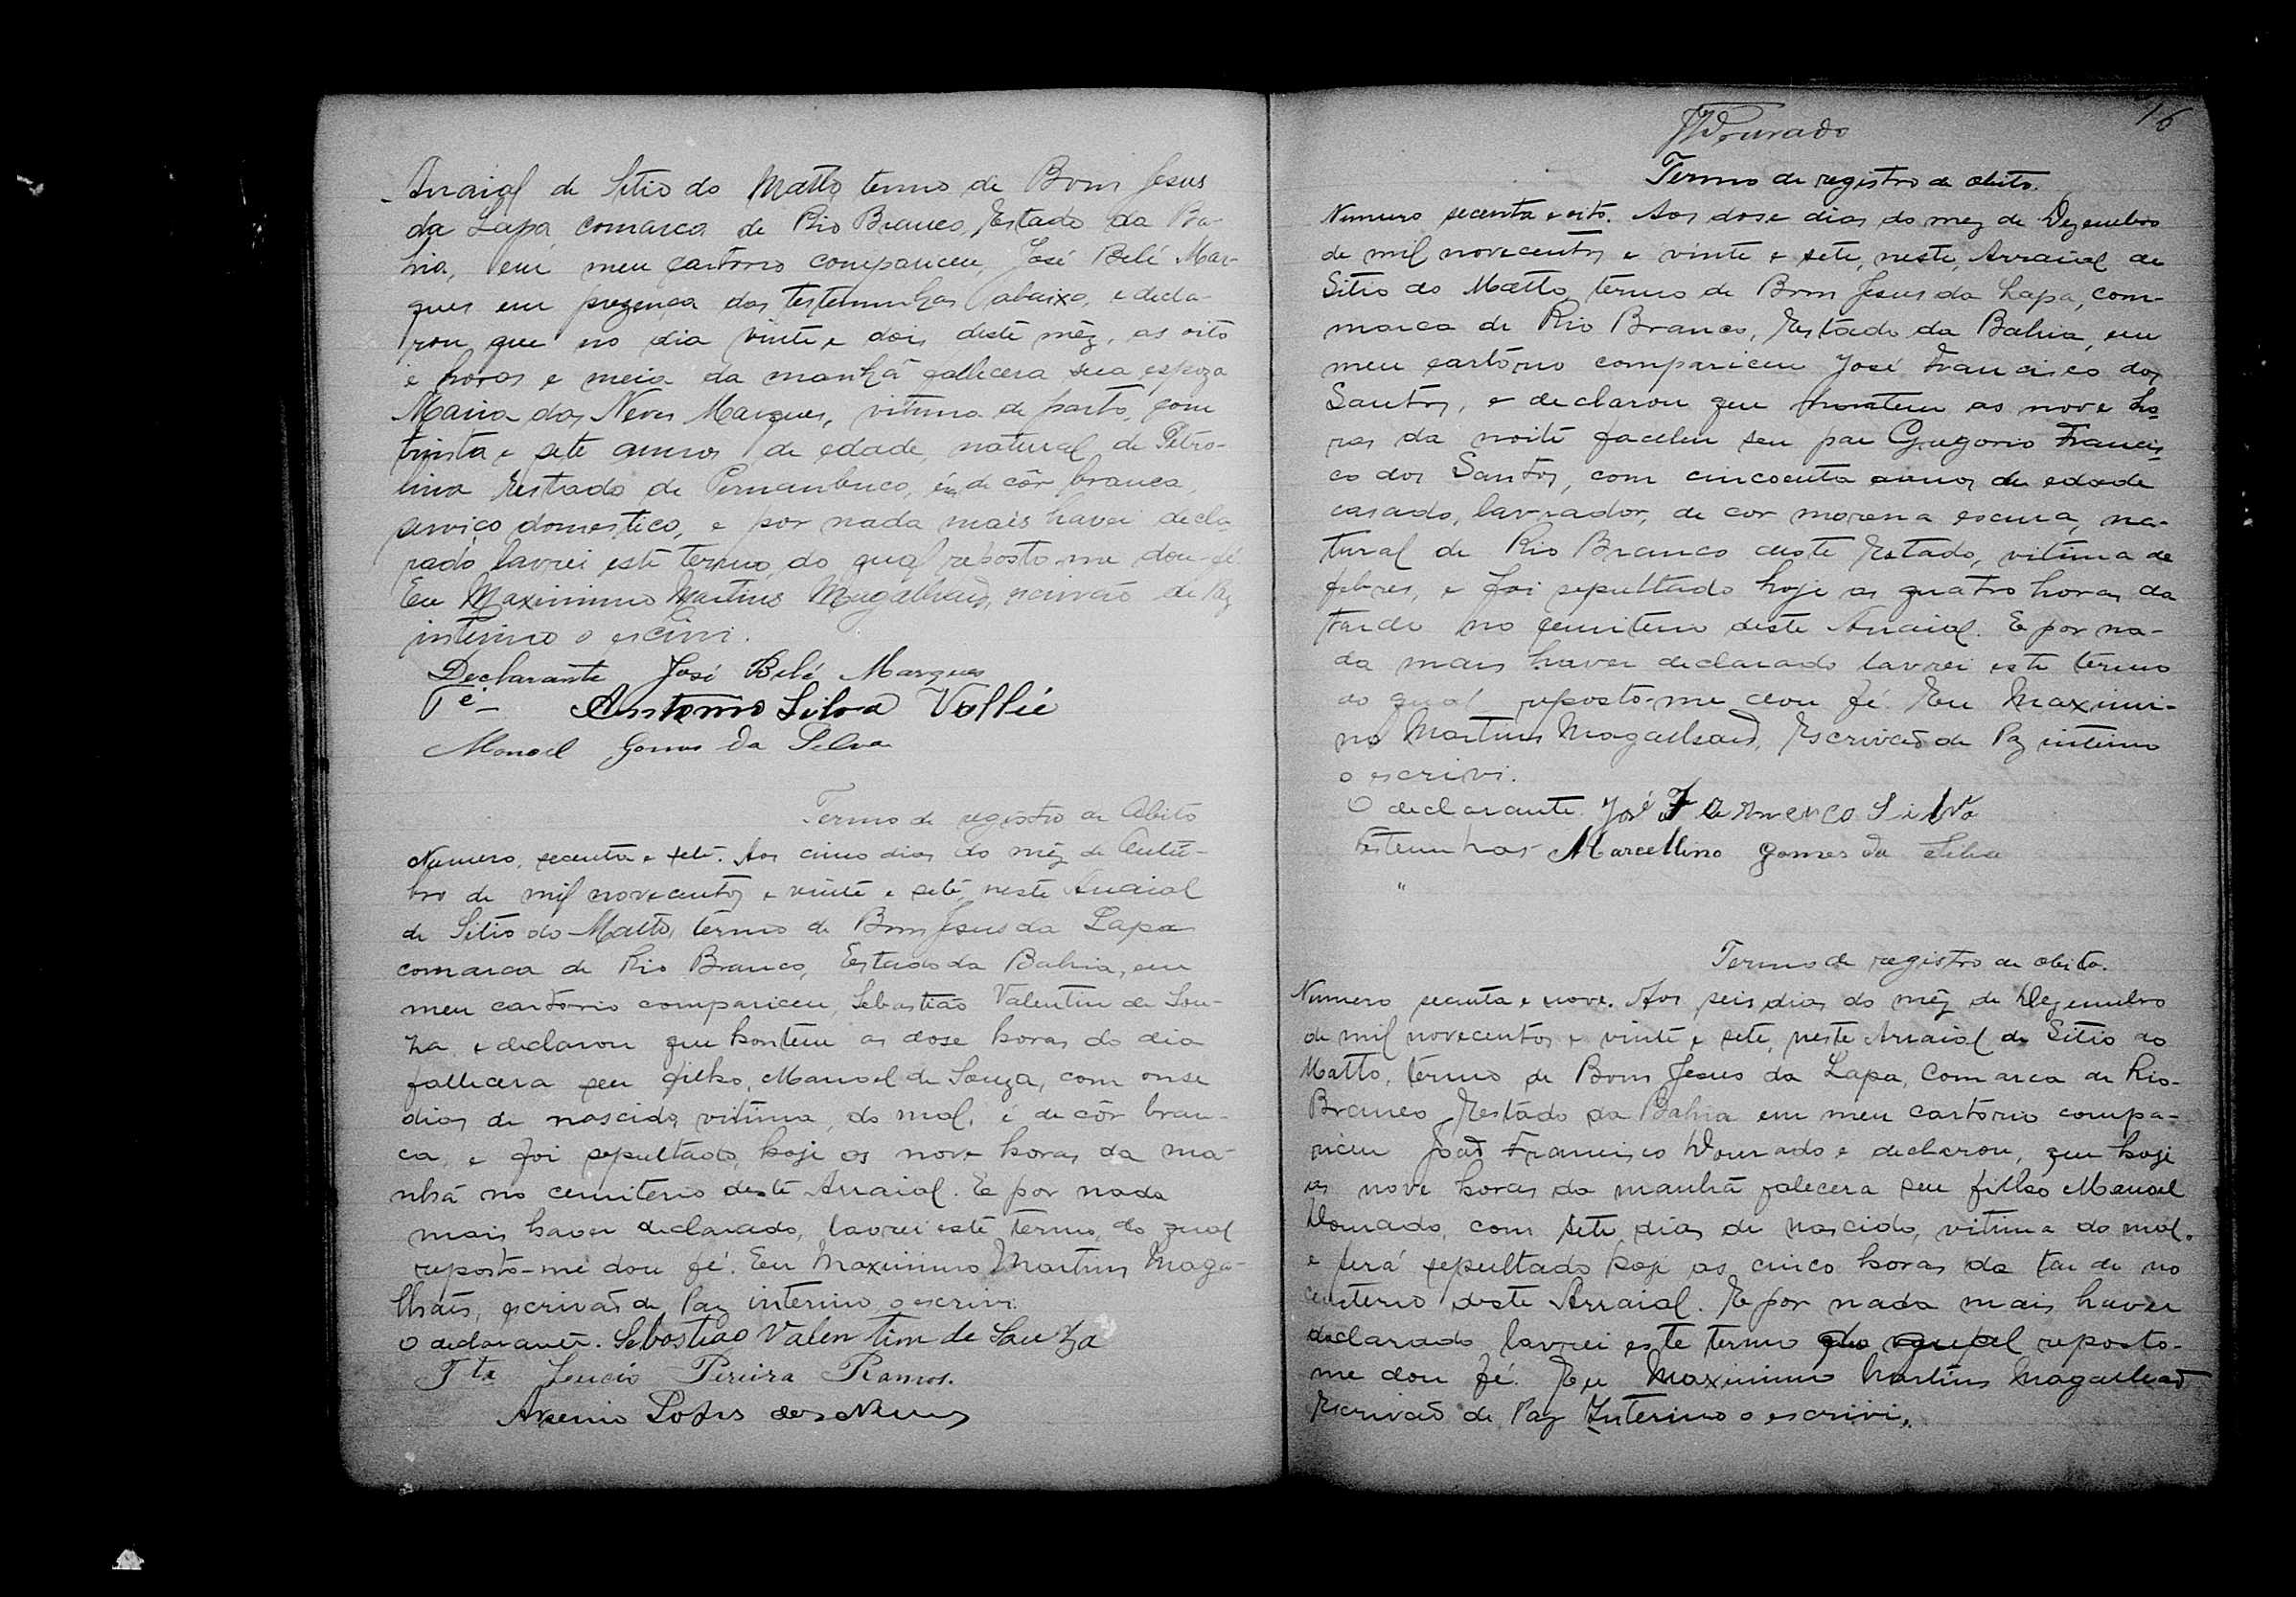 Arraial de Sitio do Matto, termo de Bom Jesus
da Lapa, comarca de Rio Branco, Estado da Ba-
hia, em meu cartorio compariceu, José Belé Mar-
ques em prezença das testemunhas abaixo, e decla-
rou que no dia vinte e dois deste mêz, as oito
e horas e meia da manhã fallecera sua espoza
Maria das Neves Marques, vitima de parto, com
trinta e sete annos de edade, natural de Petro-
lina Estado de Pernambuco, de côr branca,
serviço domestico, e por nada mais haver decla
rado lavrei este termo, do qual reposto-me dou fé.
Eu Maximino Martins Magalhães, escrivão de Paz
interino o escrivi.
Declarante José Belé Marques
Antonio Silva Vallié
Manoel Gomes da Silva
Termo de registro de Obito
Numero, secenta e sete. Aos cinco dias do mêz de Outu-
bro de mil novecentos e vinte e sete, neste Arraial
de Sitio do Matto, termo de Bom Jesus da Lapa
comarca de Rio Branco, Estado da Bahia, em
meu cartorio compariceu, Sebastião Valentim de Sou-
za e declarou que hontem as dose horas do dia
fallecera seu filho, Manoel de Souza, com onse
dias de nascido, vitima do mal, é de côr bran-
ca, e foi sepultado, hoje as nove horas da ma-
nhã no cemiterio deste Arraial. E por nada
mais haver declarado, lavrei este termo, do qual
reposto-me dou fé. Eu Maximino Martins Maga-
lhães, escrivão de Paz interino o escrivi.
O declarante. Sebastião Valentim de Souza
Tta Lucio Pereira Ramos.
Arsenio Lopes das Neves
16
Dourado
Termo de registro de obito.
Numero secenta e oito. Aos dose dias do mez de Dezembro
de mil novecentos e vinte e sete, neste, Arraial de
Sitio do Matto, termo de Bom Jesus da Lapa, com-
marca de Rio Branco, Estado da Bahia, em
meu cartorio compariceu José Francisco dos
Santos, e declarou que hontem as nove ho
ras da noite faceleu seu pae Gregorio Francis
co dos Santos, com cincoenta annos de edade
casado, lavrador, de cor morena escura, na-
tural de Rio Branco deste Estado, vitima de
febres, e foi sepultado hoje as quatro horas da
tarde no cemiterio deste Arraial. E por na-
da mais haver declarado lavrei este termo
do qual reposto-me dou fé. Eu Maximi-
no Martins Magalhães, Escrivão de Paz interino
o escrivi.
O declarante José Silva
testemunhas Marcellino Gomes da Silva
"
Termo de registro de obito.
Numero secenta e nove. Aos seis dias do mêz de Dezembro
de mil novecentos e vinte e sete, neste Arraial de Sitio do
Matto, termo de Bom Jesus da Lapa, Comarca de Rio-
Branco, Estado da Bahia em meu cartorio compa-
riceu João Francisco Dourado e declarou, que hoje
as nove horas da manhã falecera seu filho Manoel
Dourado, com sete dias de nascido, vitima do mal.
e será sepultado hoje as cinco horas da tarde no
cemiterio deste Arraial. E por nada mais haver
declarado lavrei este termo do qual reposto-
me dou fé. Eu Maximino Martins Magalhães
Escrivão de Paz Interino o escrivi.